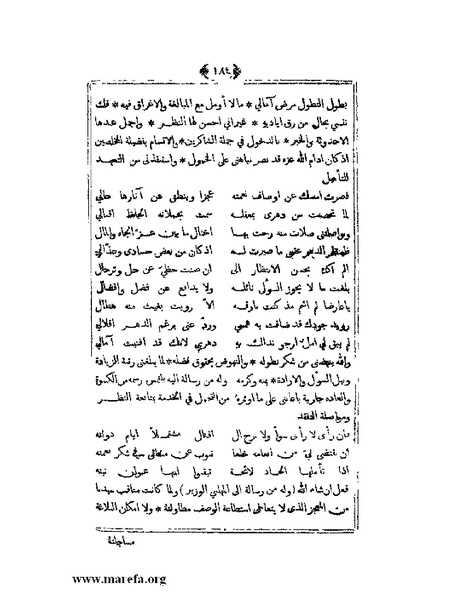 ﴿١٨٤﴾
بطول التطول مرضى آمالي * مالا أومل مع المبالغة والاغراق فيه * فلك
نفسي بحال من رق اياديه * غير اني احسن لها النظر * واجمل عندها
الاحدوثة والخبر * بالدخول في جملة الشاكرين * والاتسام بفضيلة المخلصين
اذ كان ادام الله عزه قد نصر نباهتي على الخمول * واستنقذني من التعبد
للتأميل
قصرت امسك عن اوصاف نعمته عجزا وينطق عن آثارها حالي
لما تحصنت من دهري سمت بحملانه اقبالي
وواصلتني صلات منه رحت بها اختال ما بين عز الجاه والمال
فلينظر الدهر عقبى ما صبرت له اذ كان من بعض حسادي وعذالي
الم اكد بحسن الانتظار الى ان صنت حظي عن حل وترحال
بلغت ما لا يجوز السؤل نائله ولا يدافع عن فضل وافضال
يا عارضا لم اشم مذ كنت بارقه الا رويت بغيث منه هطال
رويد جودك قد ضاقت به هممي ورد عني برغم الدهر اقلالي
لم يبق لي امل ارجو نداك به دهري لانك قد افنيت آمالي
والله ينهضني من شكر تطوله * والنهوض بحقوق فضله * لما يبلغني رتبة الزيادة
ونيل السؤل والارادة * بمنه وكرمه وله من رسالة اليه من الكسوة
والعادة جارية على ما اوثره من التجمل في الخدمة بمتابعة النظر
ومواصلة التفقد
فان رأى لا رأى سوأ ولا برح ال اقبال مشتملا ايام دولته
ان في من انعامه خلعا تنوب عن في شكر نعمته
اذا تأملها الحساد لائحة عنوان نيته
فعل ان شاء الله (وله من رسالة الى المهلبي الوزير) ولما كانت مناقب سيدنا
من المعجز الذي لا يتعاطى استطاعة الوصف مطاولته * ولا امكان البلاغة
مساجلته
www.marefa.org